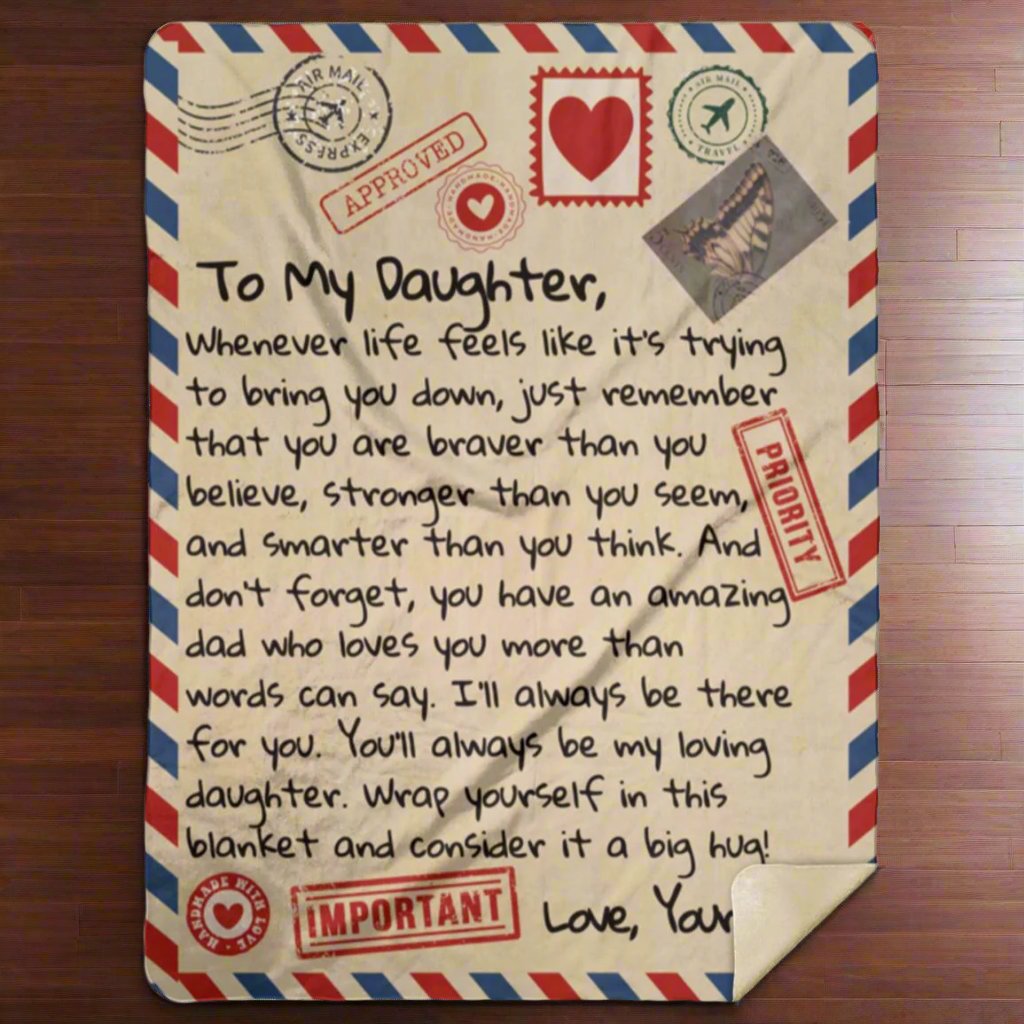 AIR MAIL
EXPRESS
APPROVED
HANDMADE · HANDMADE · HANDMADE
AIR MAIL
TRAVEL
To My Daughter,
Whenever life feels like it's trying
to bring you down, just remember
that you are braver than you
believe, stronger than you seem,
and smarter than you think. And
don't forget, you have an amazing
dad who loves you more than
words can say. I'll always be there
for you. You'll always be my loving
daughter. Wrap yourself in this
blanket and consider it a big hug!
PRIORITY
HANDMADE WITH LOVE
IMPORTANT
Love, Your